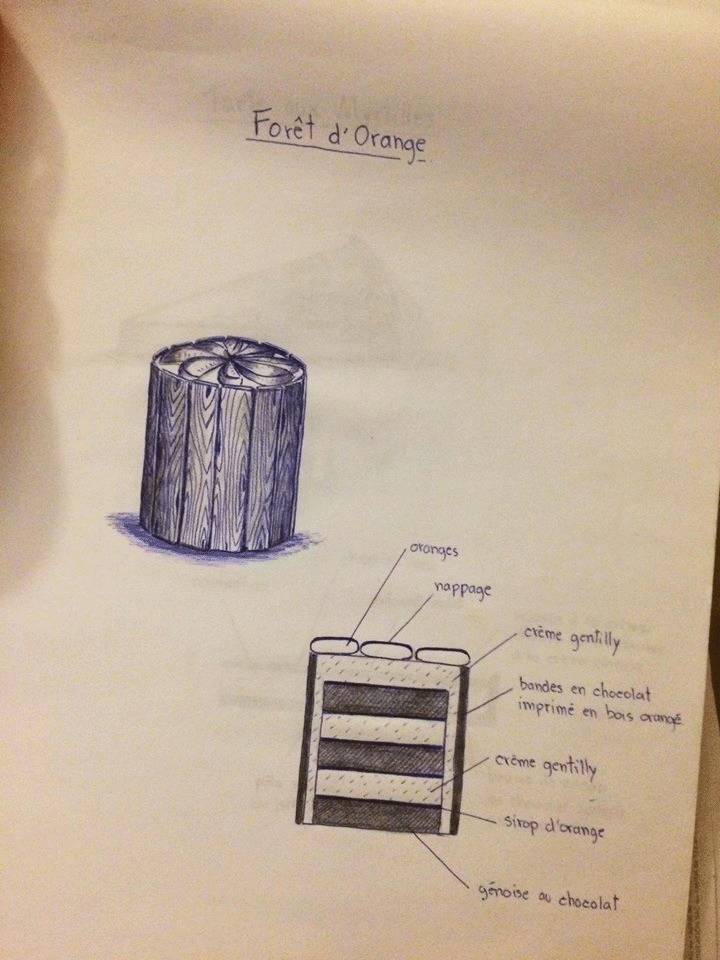 Forêt d'Orange
oranges
nappage
crème gentilly
bandes en chocolat
imprimé en bois orangé
crème gentilly
sirop d'orange
génoise au chocolat